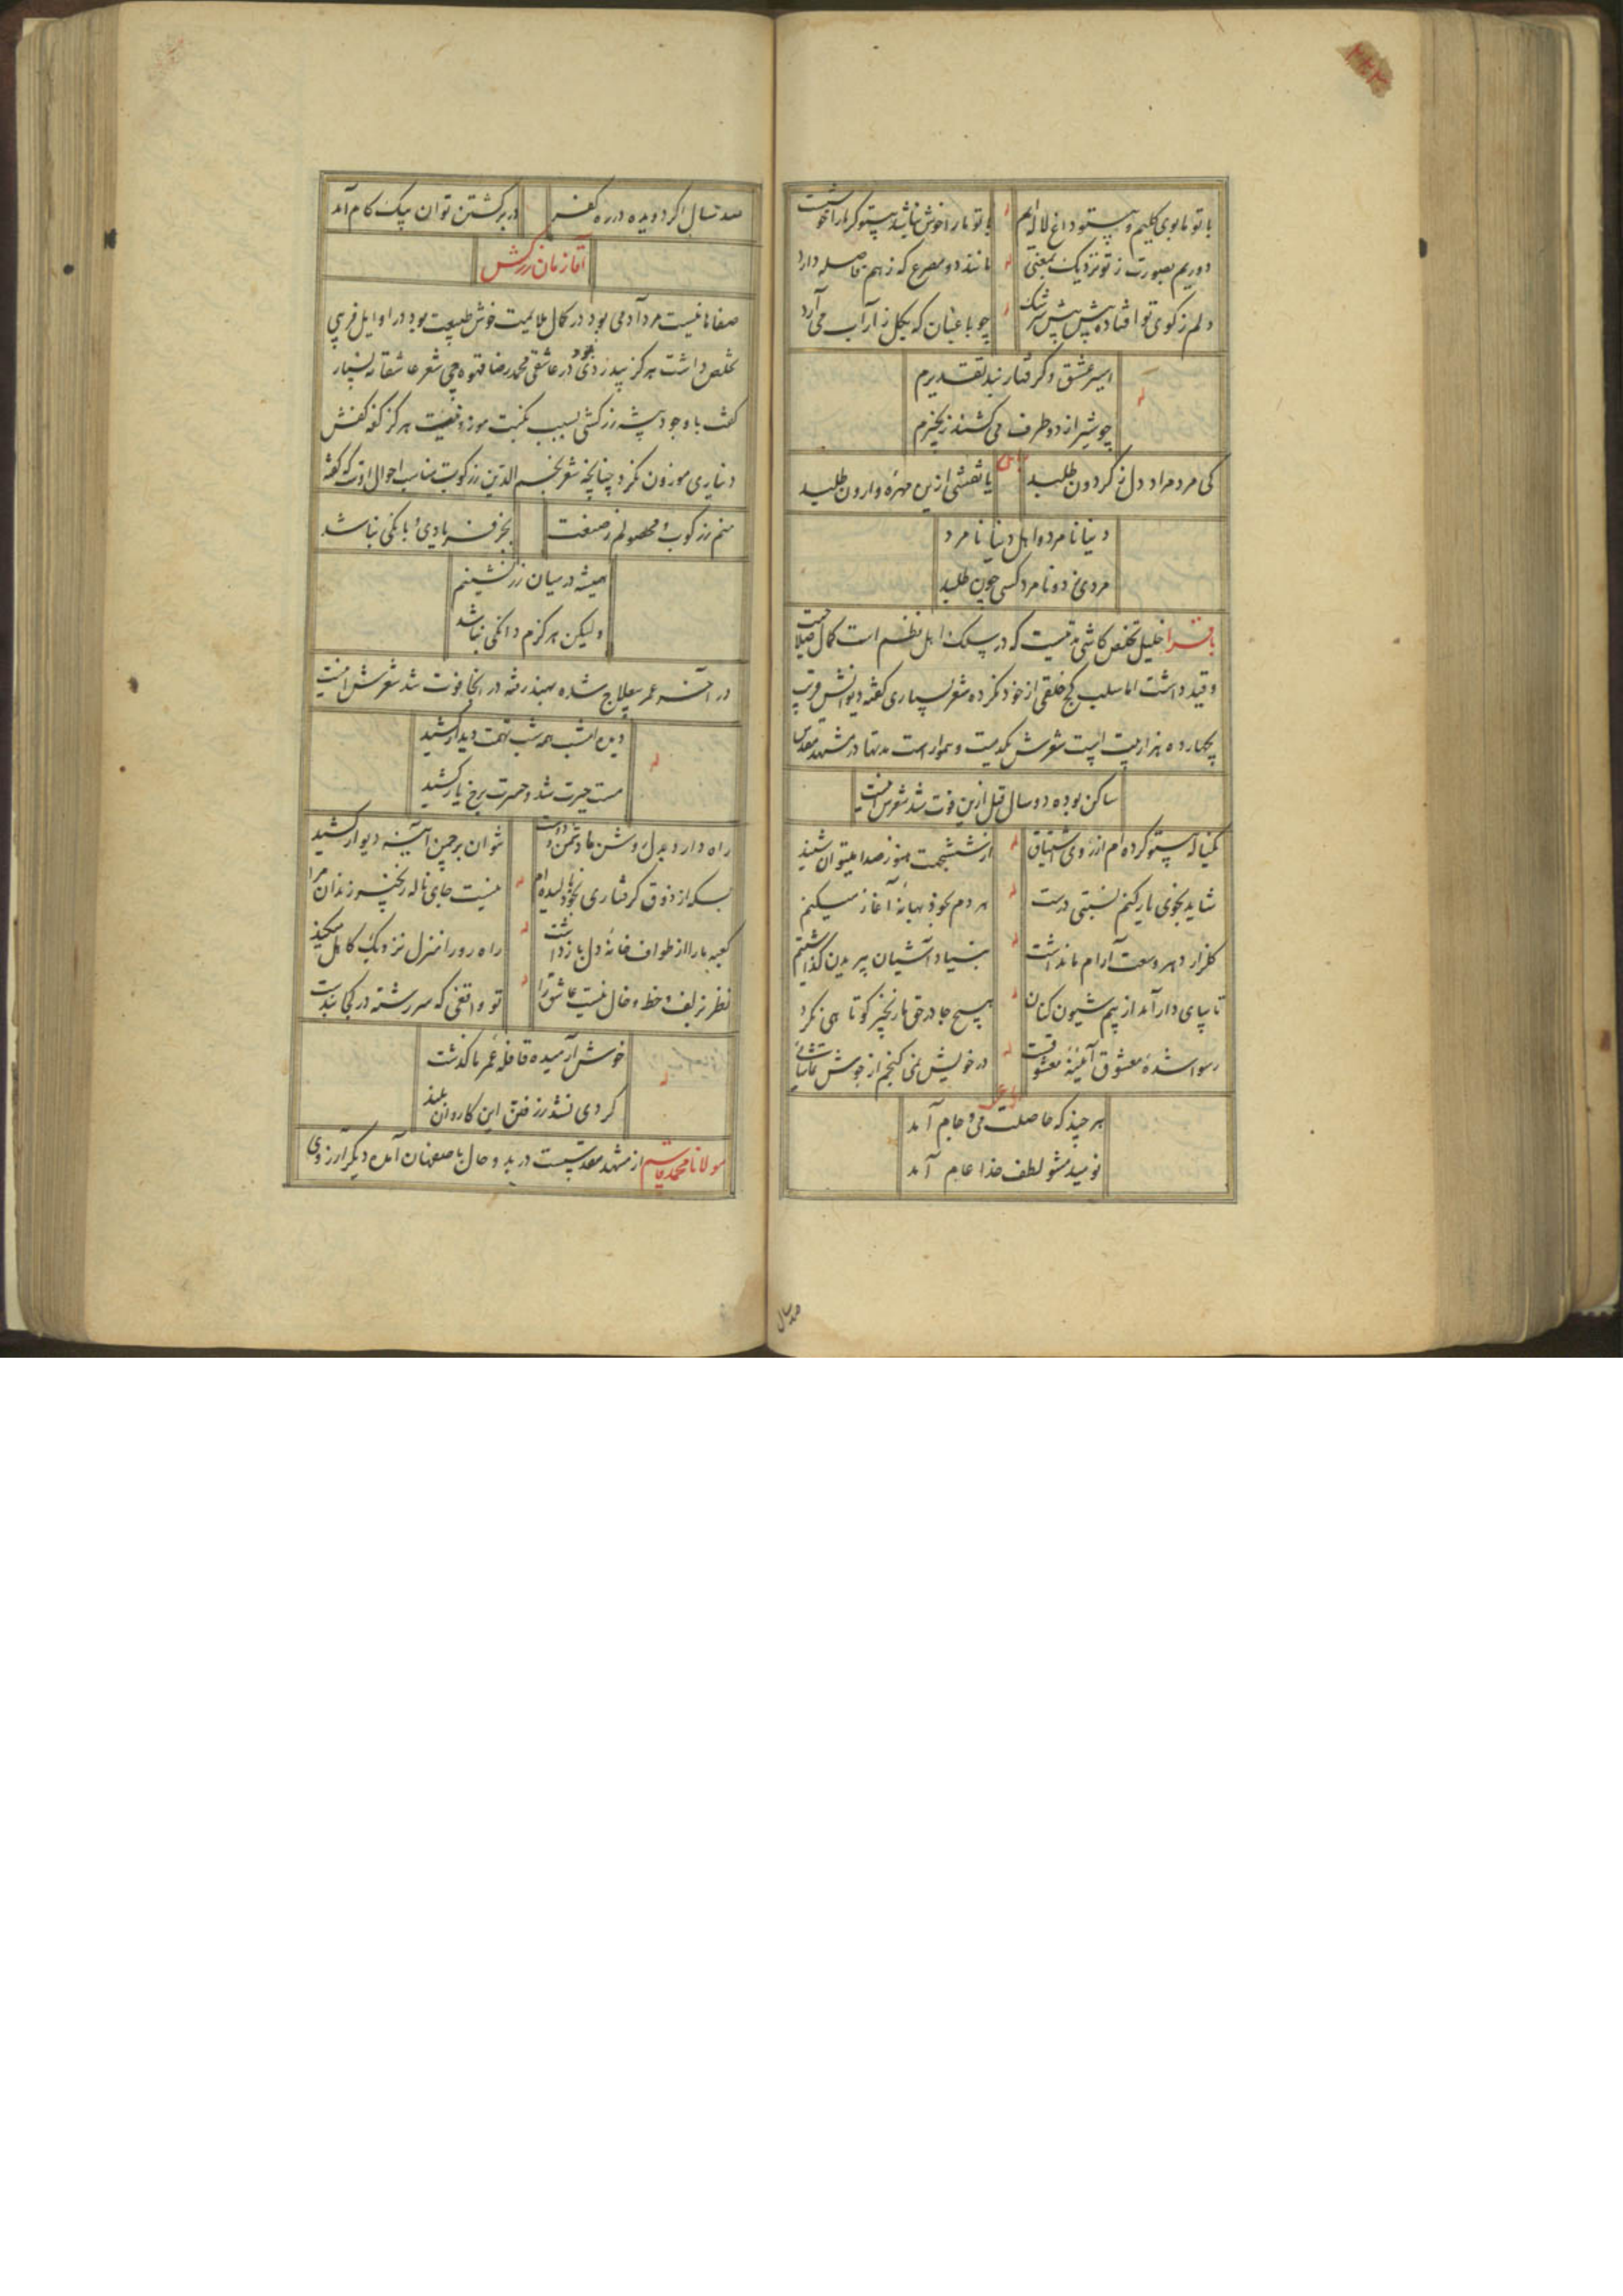 با تو ما بوی گلیم و بیتو داغ لاله ایم با تو ما را خوش نباشد بیتو گر ما را خوشست
دوریم بصورت ز تو نزدیک بمعنی مانند دو مصرع که ز هم فاصله دارد
دلم ز کوی تو افتاده پیش پیش سرشک چو باغبان که بگلزار آب می آرد
اسیر عشق و گرفتار بند تقدیرم
چو شیر از دو طرف می کشند زنجیرم
کی مرد مراد دل ز گردون طلبد یا نقشی ازین مهره وارون طلبد
دنیا نامرد و اهل دنیا نامرد
مردی ز دو نامرد کسی چون طلبد
باقرا خلیل تخلص کاشی مدتیست که در سلک اهل نظم است کمال صلاحیت
و قید داشت اما سلب کج خلقی از خود نکرده شعر بسیاری گفته دیوانش قریب
بچهارده هزار بیت است شعرش یکدست و هموار است مدتها در مشهد مقدس
ساکن بوده دو سال قبل ازین فوت شد شعرش اینست
یکناله بیتو کرده ام از روی اشتیاق از ششجهت هنوز صدا میتوان شنید
شاید بخوی یار کنم نسبتی درست هر دم بخود بهانه آغاز میکنم
گلزار دهر وسعت آرام ما نداشت بنیاد آشیان بپریدن گذاشتیم
تا بپای دار آمد از پیم شیون کنان هیچ جا در حق ما زنجیر کوتاهی نکرد
رسوا شده معشوق آئینه معشوقست در خویش نمی گنجم از جوش تماشائی
هر چند که حاصلت می و جام آمد
نومید مشو لطف خدا عام آمد
صد سال
صد سال اگر دویده در ره کفر در برگشتن توان بیک گام آمد
آقا زمان زرکش
صفاهانیست مرد آدمی بود در کمال ملایمت خوش طبیعت بود در اوایل فریبی
تخلص داشت هرگز بیدردی نبود در عاشقی محمد رضا قهوه چی شعر عاشقانه بسیار
گفت با وجود پیشه زرکشی بسبب نکبت موزونیت هرگز کفه کفش
دیناری موزون نکرد چنانچه شعر نجم الدین زرکوب مناسب احوال اوست که گفته
منم زرکوب و محصولم ز صنعت بجز فریادی و بانگی نباشد
همیشه در میان زر نشینم
ولیکن هرگزم دانگی نباشد
در آخر عمر بیعلاج شده بهند رفته در آنجا فوت شد شعرش اینست
دیده امشب همه شب تهمت دیدار کشید
مست حیرت شد و حسرت برخ یار کشید
راه دارد بدل روشن ما دشمن و دوست نتوان بر چمن آیینه دیوار کشید
بسکه از ذوق گرفتاری بخود بالیده ام نیست جای ناله زنجیر زندان مرا
کعبه ما را از طواف خانه دل باز داشت راه رو را منزل نزدیک کاهل میکند
نظر بزلف و خط و خال نیست عاشق را تو واقفی که سر رشته در کجا بندست
خوش آرمیده قافله عمر ما گذشت
گردی نشد ز رفتن این کاروان بلند
مولانا محمد قاسم از مشهد مقدست در بدو حال باصفهان آمده دیگر آرزوی